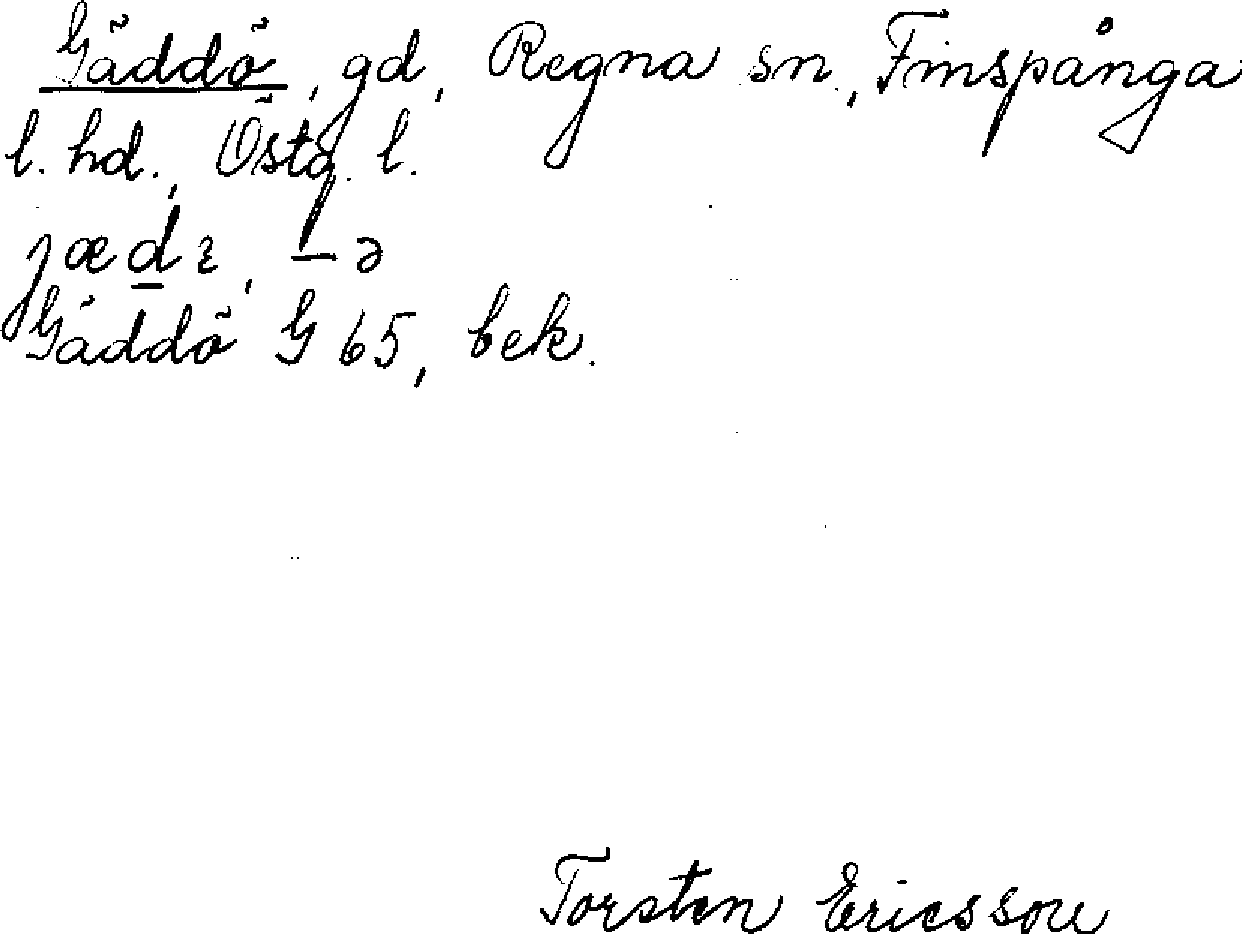 Gäddö, gd, Regna sn., Finspånga
l. hd., Östg. l.
jædɛ, –ə
Gäddö G 65, bek.
Torsten Ericsson